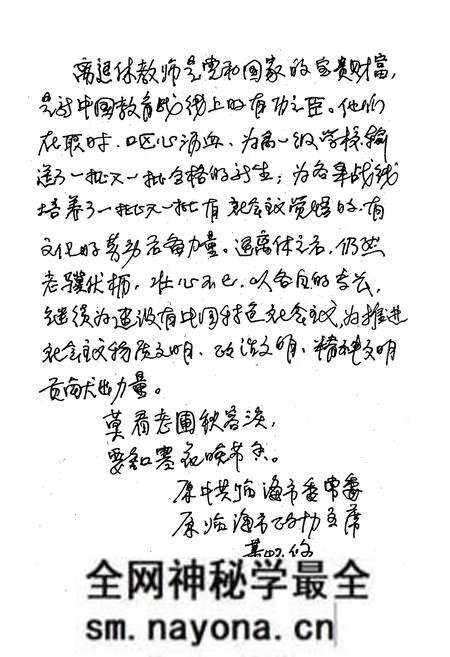 离退休教师是党和国家的宝贵财富，
是新中国教育战线上的有功之臣。他们
在职时，呕心沥血，为高一级学校输
送了一批又一批合格的新生；为各条战线
培养了一批又一批有社会主义觉悟的、有
文化的劳动后备力量。退离休之后，仍然
老骥伏枥，壮心不已，以各自的专长，
继续为建设有中国特色社会主义，为推进
社会主义物质文明、政治文明、精神文明
贡献出力量。
莫看老圃秋容淡，
要知寒花晚节香。
原中共临海市委常委
原临海市政协主席
全网神秘学最全
sm.nayona.cn